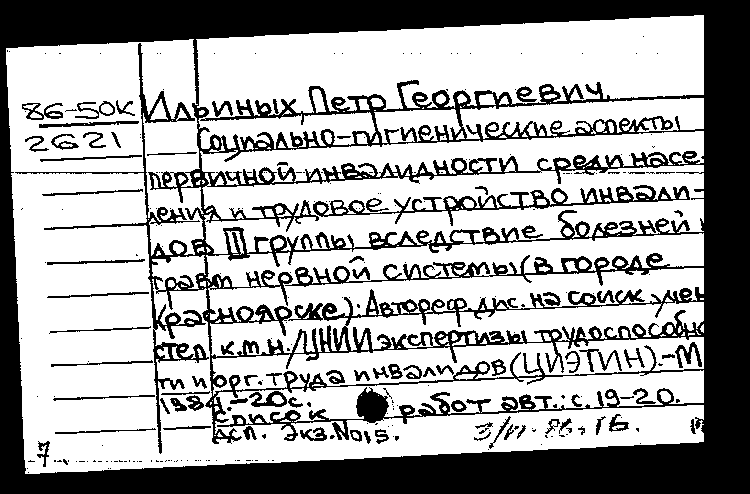 86-50к Ильиных, Петр Георгиевич.
2621 Социально-гигиенические аспекты
первичной инвалидности среди насе-
ления и трудовое устройство инвали-
дов III группы вследствие болезней и
травм нервной системы (в городе
Красноярске): Автореф. дис. на соиск. учен
степ. к.м.н. / ЦНИИ экспертизы трудоспособнос
ти и орг. труда инвалидов (ЦИЭТИН). - М
1984. - 20с.
Список работ авт.: с. 19-20.
ДСП. Экз. №15. 3/п-86-16.
7